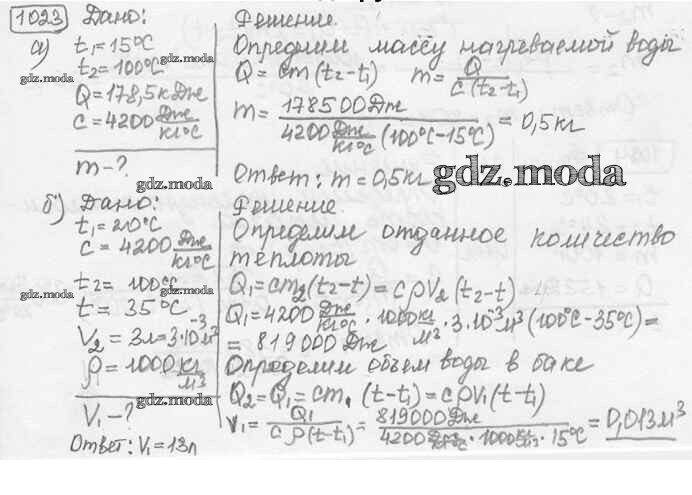 1023 Дано:
а) t₁=15°C
t₂=100°C
Q=178,5кДж
c=4200 Дж/кг°C
m-?
Решение
Определим массу нагреваемой воды
Q=cm(t₂-t₁) m=Q/c(t₂-t₁)
m=178500Дж/4200 Дж/кг°C (100°C-15°C)=0,5кг
Ответ: m=0,5кг
gdz.moda
gdz.moda
gdz.moda
gdz.moda
gdz.moda
б) Дано:
t₁=20°C
c=4200 Дж/кг°C
t₂=100°C
t=35°C
V₂=3л=3·10⁻³м³
ρ=1000 кг/м³
V₁-?
Ответ: V₁=13л
gdz.moda
gdz.moda
gdz.moda
Решение
Определим отданное количество
теплоты
Q₁=cm₂(t₂-t)=cρV₂(t₂-t)
Q₁=4200 Дж/кг°C · 1000 кг/м³ · 3·10⁻³м³(100°C-35°C)=
=819000Дж
Определим объем воды в баке
Q₂=Q₁=cm₁(t-t₁)=cρV₁(t-t₁)
V₁=Q₁/cρ(t-t₁)=819000Дж/4200 Дж/кг°C·1000 кг/м³·15°C=0,013м³